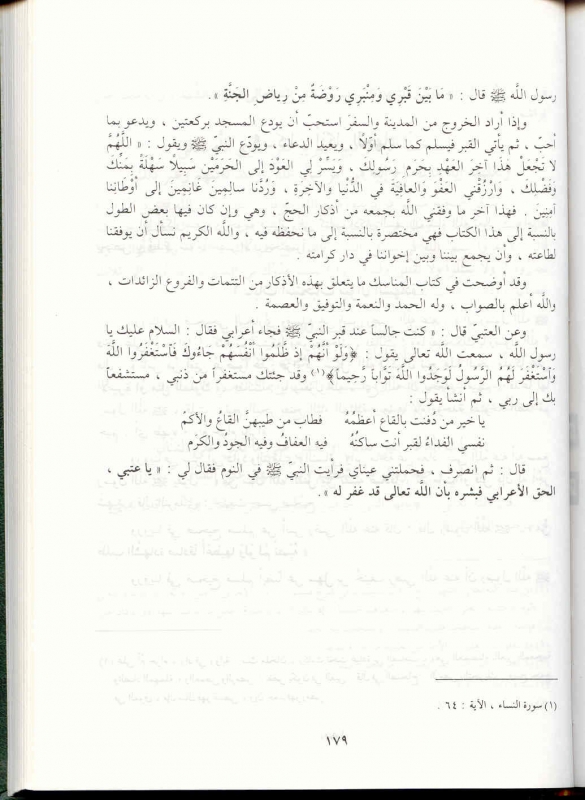 رسول اللَّه ﷺ قال : « مَا بَيْنَ قَبْرِي وَمِنْبَرِي رَوْضَةٌ مِنْ رِياضِ الجَنَّةِ ».
وإذا أراد الخروج من المدينة والسفرَ استحبّ أن يودع المسجد بركعتين ، ويدعو بما
أحبّ ، ثم يأتي القبر فيسلم كما سلم أوّلاً ، ويعيد الدعاء ، ويودّع النبيّ ﷺ ويقول : « اللَّهُمَّ
لا تَجْعَلْ هَذَا آخِرَ العَهْدِ بِحَرَمِ رَسُولِكَ ، وَيَسِّرْ لِي العَوْدَ إلى الحَرَمَيْنِ سَبِيلاً سَهْلَةً بِمَنِّكَ
وَفَضْلِكَ ، وَارْزُقْنِي العَفْوَ والعافِيَةَ في الدُّنْيا والآخِرَةِ ، وَرُدَّنا سالِمِينَ غانِمِينَ إلى أوْطَانِنا
آمِنِينَ . فهذا آخر ما وفقني اللَّه بجمعه من أذكار الحجّ ، وهي وإن كان فيها بعض الطول
بالنسبة إلى هذا الكتاب فهي مختصرة بالنسبة إلى ما نحفظه فيه ، واللَّه الكريم نسأل أن يوفقنا
لطاعته ، وأن يجمع بيننا وبين إخواننا في دار كرامته .
وقد أوضحت في كتاب المناسك ما يتعلق بهذه الأذكار من التتمات والفروع الزائدات ،
واللَّه أعلم بالصواب ، وله الحمد والنعمة والتوفيق والعصمة .
وعن العتبيّ قال : « كنت جالساً عند قبر النبيّ ﷺ فجاء أعرابي فقال : السلام عليك يا
رسول اللَّه ، سمعت اللَّه تعالى يقول : ﴿وَلَوْ أنَّهُمْ إذ ظَّلَمُوا أنْفُسَهُمْ جَاءُوكَ فَاسْتَغْفَرُوا اللَّهَ
وَاسْتَغْفَرَ لَهُمُ الرَّسُولُ لَوَجَدُوا اللَّهَ تَوَّاباً رَّحِيماً﴾(١) وقد جئتك مستغفراً من ذنبي ، مستشفعاً
بك إلى ربي ، ثم أنشأ يقول :
يا خير من دُفنت بالقاع أعظمُهُ فطاب من طيبهنَّ القاعُ والأكمُ
نفسي الفداءُ لقبر أنت ساكنُهُ فيه العفافُ وفيه الجودُ والكرم
قال : ثم انصرف ، فحملتني عيناي فرأيت النبيّ ﷺ في النوم فقال لي : « يا عتبي ،
الحق الأعرابي فبشره بأن اللَّه تعالى قد غفر له ».
(١) سورة النساء ، الآية : ٦٤ .
١٧٩